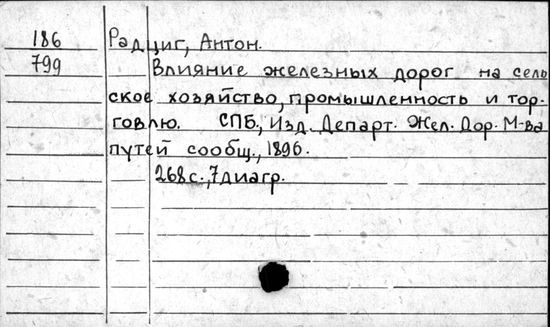 186 Радциг, Антон.
799 Влияние железных дорог на сель
ское хозяйство, промышленность и тор-
говлю. СПБ, Изд. Департ. Жел. Дор. М-ва
путей сообщ., 1896.
268 с., 7 диагр.